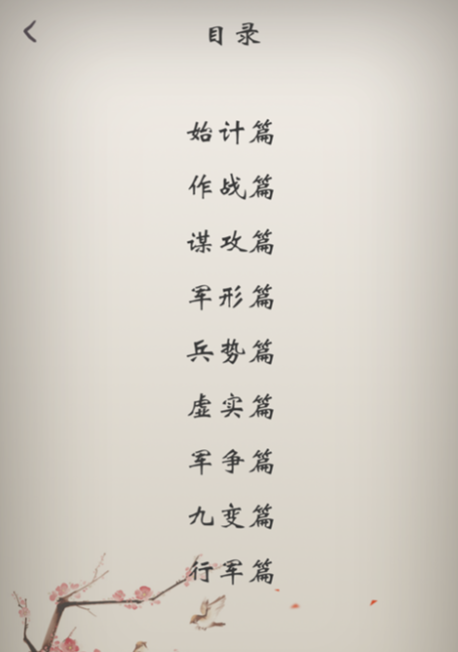 目录
始计篇
作战篇
谋攻篇
军形篇
兵势篇
虚实篇
军争篇
九变篇
行军篇